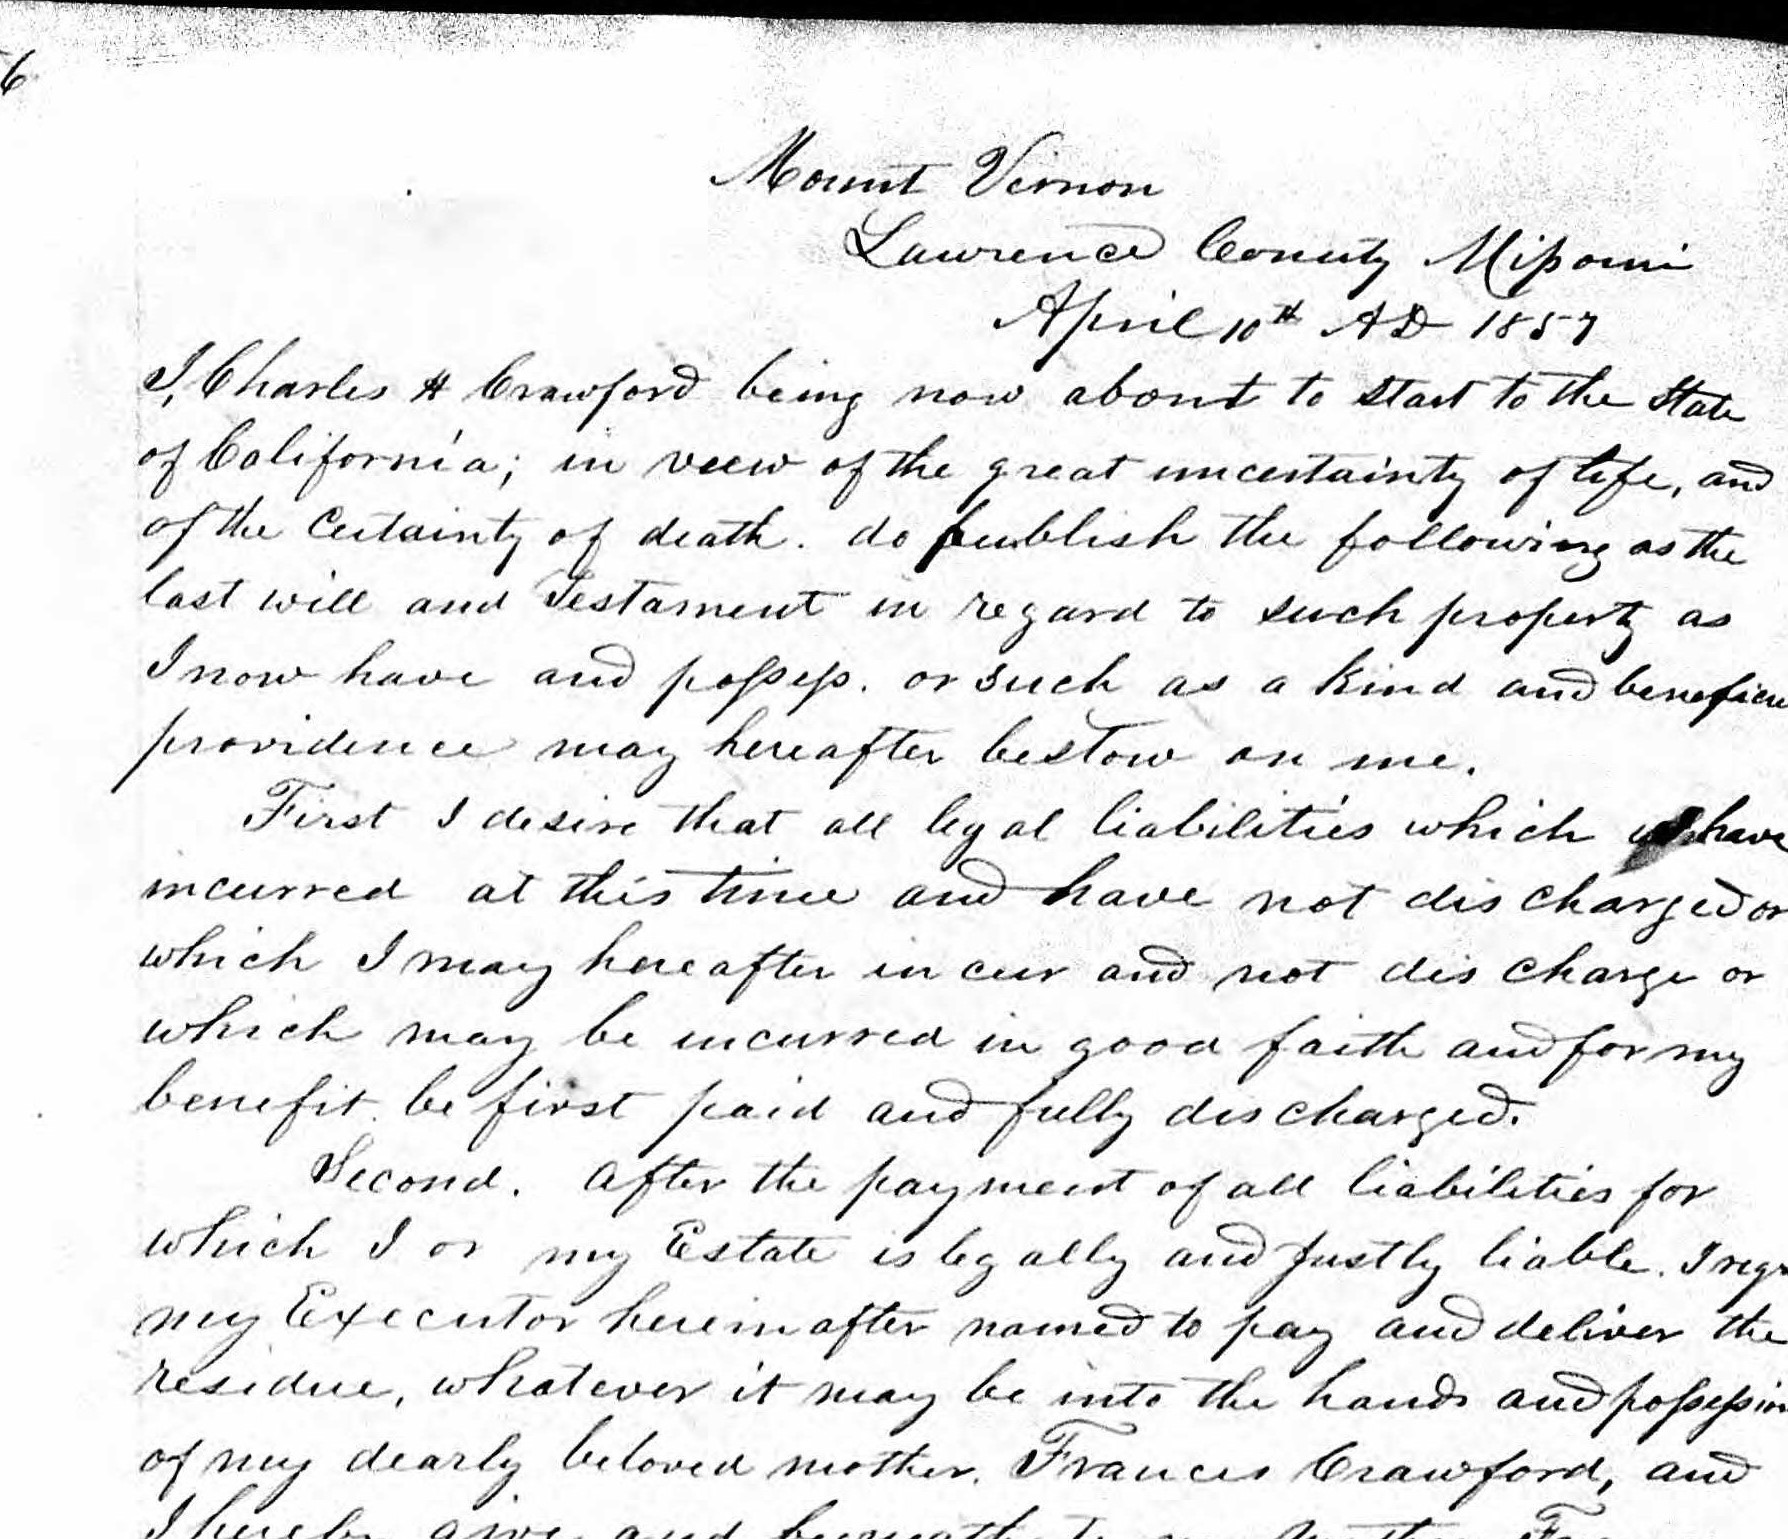 6
Mount Vernon
Lawrence County Missouri
April 10th AD 1857
I, Charles H Crawford being now about to start to the State
of California; in view of the great uncertainty of life, and
of the Certainty of death. do publish the following as the
last will and Testament in regard to such property as
I now have and possess. or such as a kind and
providence may hereafter bestow on me.
First I desire that all legal liabilities which have
incurred at this time and have not discharged or
which I may hereafter incur and not discharge or
which may be incurred in good faith and for my
benefit. be first paid and fully discharged.
Second. After the payment of all liabilities for
which I or my Estate is legally and justly liable. I
my Executor hereinafter named to pay and deliver the
residue, whatever it may be into the hands and possession
of my dearly beloved mother. Frances Crawford, and
I hereby give and bequeath